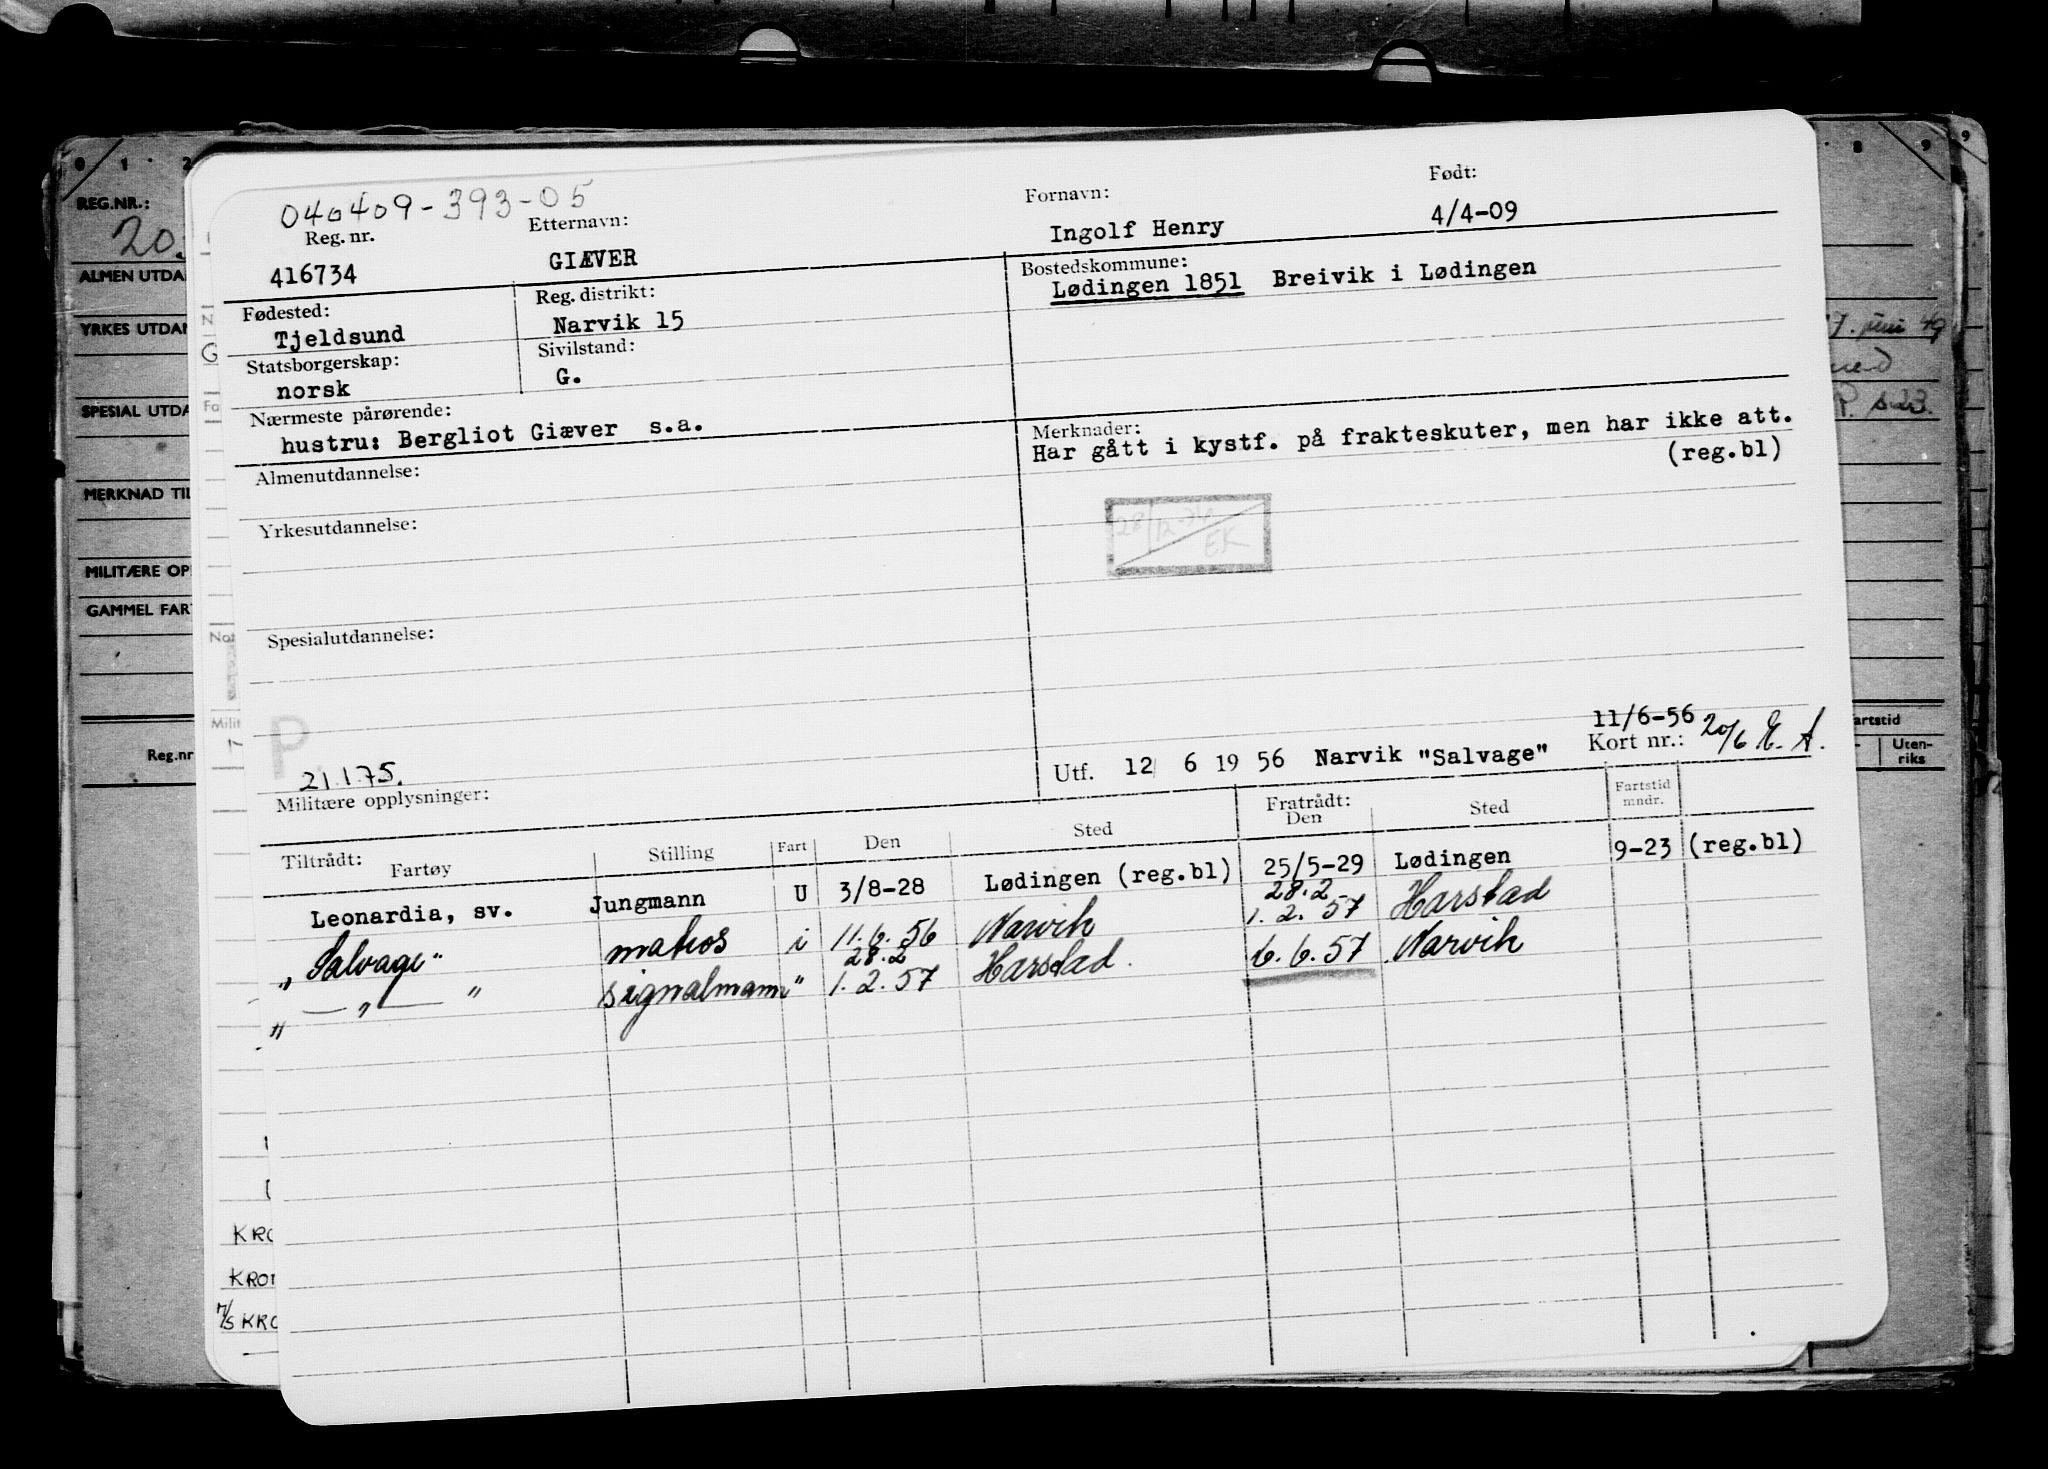 040409-393-05
Reg. nr.
416734
Etternavn:
GIÆVER
Fornavn:
Ingolf Henry
Født:
4/4-09
Fødested:
Tjeldsund
Reg. distrikt:
Narvik 15
Bostedskommune:
Lødingen 1851 Breivik i Lødingen
Statsborgerskap:
norsk
Sivilstand:
G.
Nærmeste pårørende:
hustru: Bergliot Giæver s.a.
Merknader:
Har gått i kystf. på frakteskuter, men har ikke att.
(reg.bl)
Almenutdannelse:
Yrkesutdannelse:
EK
Spesialutdannelse:
P
21.1.75.
Militære opplysninger:
11/6-56
Utf. 12 6 19 56 Narvik "Salvage" Kort nr.: 20/6 E. A.
Tiltrådt: Fartøy Stilling Fart Den Sted Fratrådt: Den Sted Fartstid mndr.
Leonardia, sv. Jungmann U 3/8-28 Lødingen (reg.bl) 25/5-29 Lødingen 9-23 (reg.bl)
28.2
"Salvage" matros i 11.6.56 Narvik 1.2.57 Harstad
28.2
" — " — " signalmann " 1.2.57 Harstad. 6.6.57 Narvik
0 1 2
REG.NR.:
20
ALMEN UTDA
YRKES UTDAN
SPESIAL UTDA
MERKNAD TIL
MILITÆRE OP
GAMMEL FAR
Reg.nr
N
G
Fa
Milit
KRO
KRO
M/S KRO
8 9 9
artstid
Uten-
riks